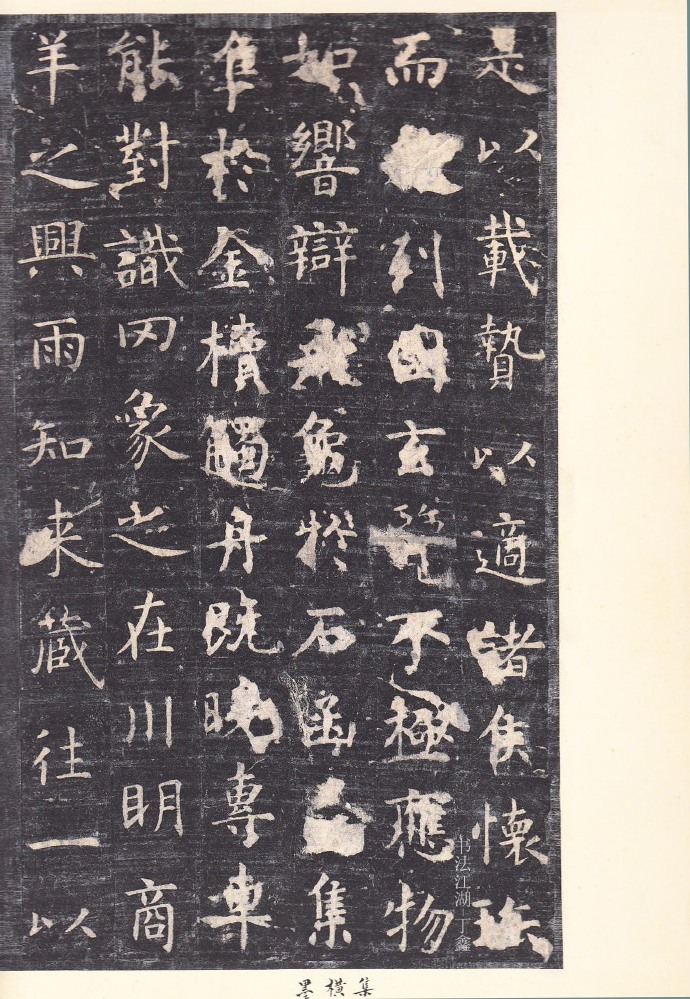 是以載贄以適諸侯懷
而列國玄覽不極應物
如響辯飛龜於石函集
隼於金櫝觸舟既曉專車
能對識罔象之在川明商
羊之興雨知來藏往一以
书法江湖 丁鑫
墨橫集